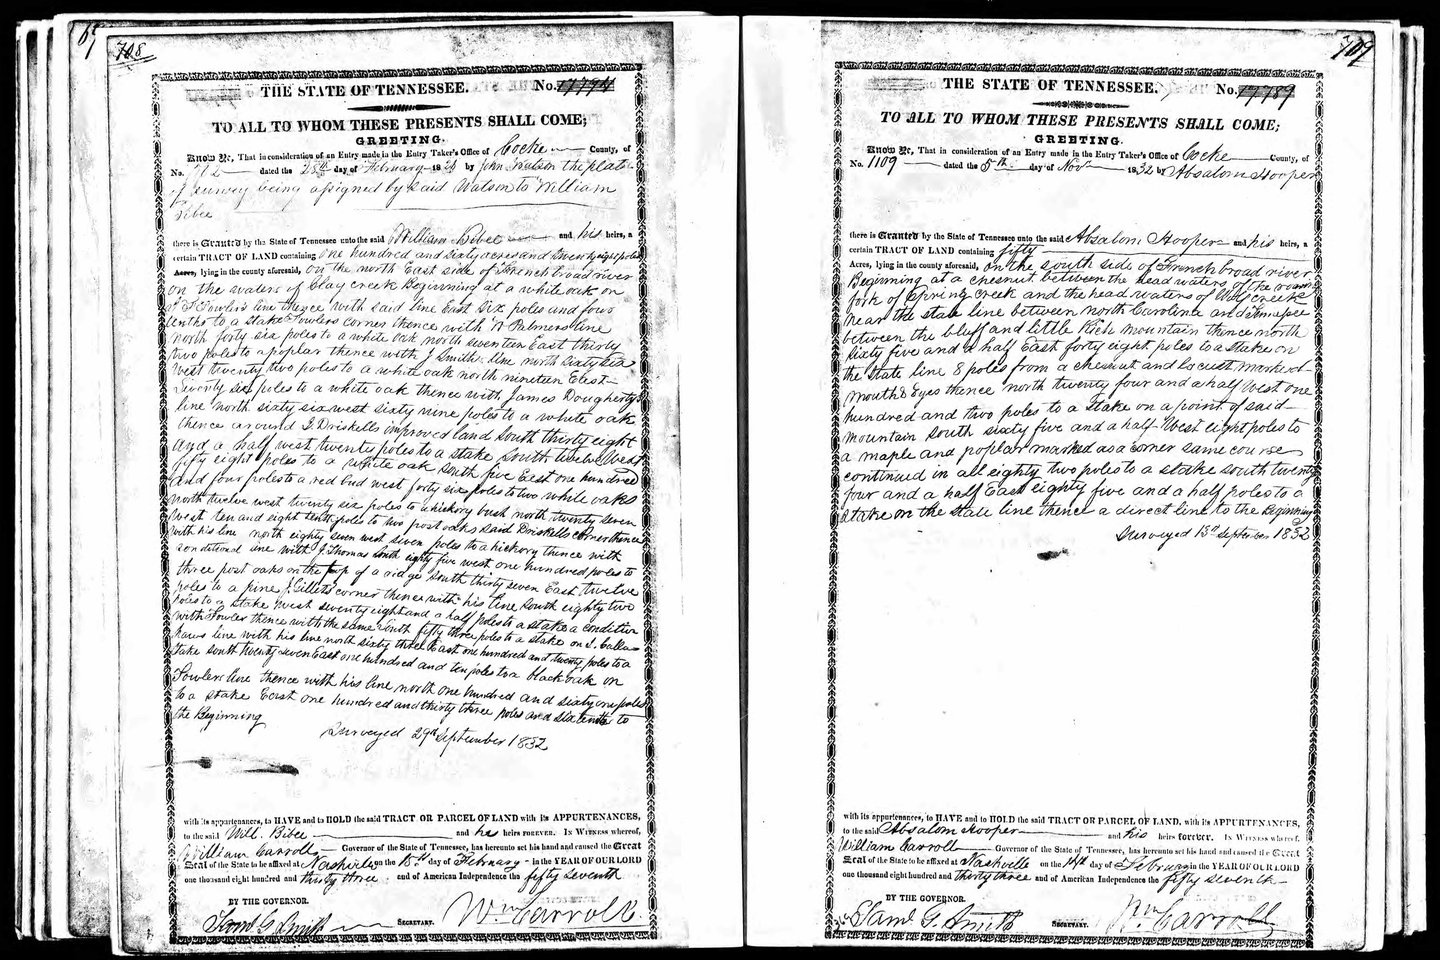 708
THE STATE OF TENNESSEE. No. 17794
TO ALL TO WHOM THESE PRESENTS SHALL COME;
GREETING.
Know Ye, That in consideration of an Entry made in the Entry Taker's Office of Cocke County, of
No. dated the 28th day of February 18 by John Watson the plat
of survey being assigned by said Watson to William
Bibee
there is Granted by the State of Tennessee unto the said William Bibee and his heirs, a
certain TRACT OF LAND containing one hundred and sixty acres and twenty eight poles
Acres, lying in the county aforesaid, on the north East side of French broad river
on the waters of Clay creek Beginning at a white oak on
Fowlers line thence with said line East Six poles and four
tenths to a stake Fowlers corner thence with Palmers line
north forty six poles to a white oak north seventeen East thirty
two poles to a poplar thence with J Smiths line north Sixty six
West twenty two poles to a white oak north nineteen East
Twenty six poles to a white oak thence with James Doughertys
line north sixty six west sixty nine poles to a white oak
thence around Driskells improved land South thirty eight
and a half west twenty poles to a stake South twelve West
fifty eight poles to a white oak South five East one hundred
and four poles to a red bud west forty six poles to two white oaks
north twelve west twenty six poles to a hickory bush north twenty seven
West ten and eight tenth poles to two post oaks said Driskells corner thence
with his line north eighty seven west seven poles to a hickory thence with
conditional line with J Thomas South eighty five west one hundred poles to
three post oaks on the top of a ridge South thirty seven East twelve
poles to a pine J. Gilletts corner thence with his line South eighty two
poles to a stake West seventy eight and a half poles to a stake a condition
with Fowler thence with the same South fifty three poles to a stake on Calla=
haws line with his line north sixty three East one hundred and twenty poles to a
stake South twenty seven East one hundred and ten poles to a black oak on
Fowlers line thence with his line north one hundred and sixty one poles
to a stake East one hundred and thirty three poles and six tenths to
the Beginning
Surveyed 29th September 1832
with its appurtenances, to HAVE and to HOLD the said TRACT OR PARCEL OF LAND with its APPURTENANCES,
to the said Will. Bibee and his heirs FOREVER. In Witness whereof,
William Carroll Governor of the State of Tennessee, has hereunto set his hand and caused the Great
Seal of the State to be affixed at Nashville on the 15th day of February in the YEAR OF OUR LORD
one thousand eight hundred and thirty three and of American Independence the fifty seventh
BY THE GOVERNOR.
Saml G. Smith Secretary. Wm Carroll
709
THE STATE OF TENNESSEE. No. 17789
TO ALL TO WHOM THESE PRESENTS SHALL COME;
GREETING.
Know Ye, That in consideration of an Entry made in the Entry Taker's Office of Cocke County, of
No. 1109 dated the 5th day of Nov 1832 by Absalom Hooper
there is Granted by the State of Tennessee unto the said Absalom Hooper and his heirs, a
certain TRACT OF LAND containing fifty
Acres, lying in the county aforesaid, on the south side of French broad river
Beginning at a chesnut between the head waters of the roaring
fork of Spring Creek and the head waters of Wolf creek
near the state line between north Carolina and Tennessee
between the bluff and little Rich Mountain thence north
Sixty five and a half East forty eight poles to a stake on
the state line 8 poles from a chesnut and Locust marked
mouth & Eyes thence north twenty four and a half West one
hundred and two poles to a Stake on a point of said
Mountain South sixty five and a half West eight poles to
a maple and poplar marked as a corner same course
continued in all eighty two poles to a stake south twenty
four and a half East eighty five and a half poles to a
stake on the state line thence a direct line to the Beginning
Surveyed 13th September 1832
with its appurtenances, to HAVE and to HOLD the said TRACT OR PARCEL OF LAND, with its APPURTENANCES,
to the said Absalom Hooper and his heirs forever. In Witness whereof,
William Carroll Governor of the State of Tennessee, has hereunto set his hand and caused the Great
Seal of the State to be affixed at Nashville on the 14th day of February in the YEAR OF OUR LORD
one thousand eight hundred and thirty three and of American Independence the fifty seventh
BY THE GOVERNOR.
Saml G. Smith Secretary. Wm Carroll